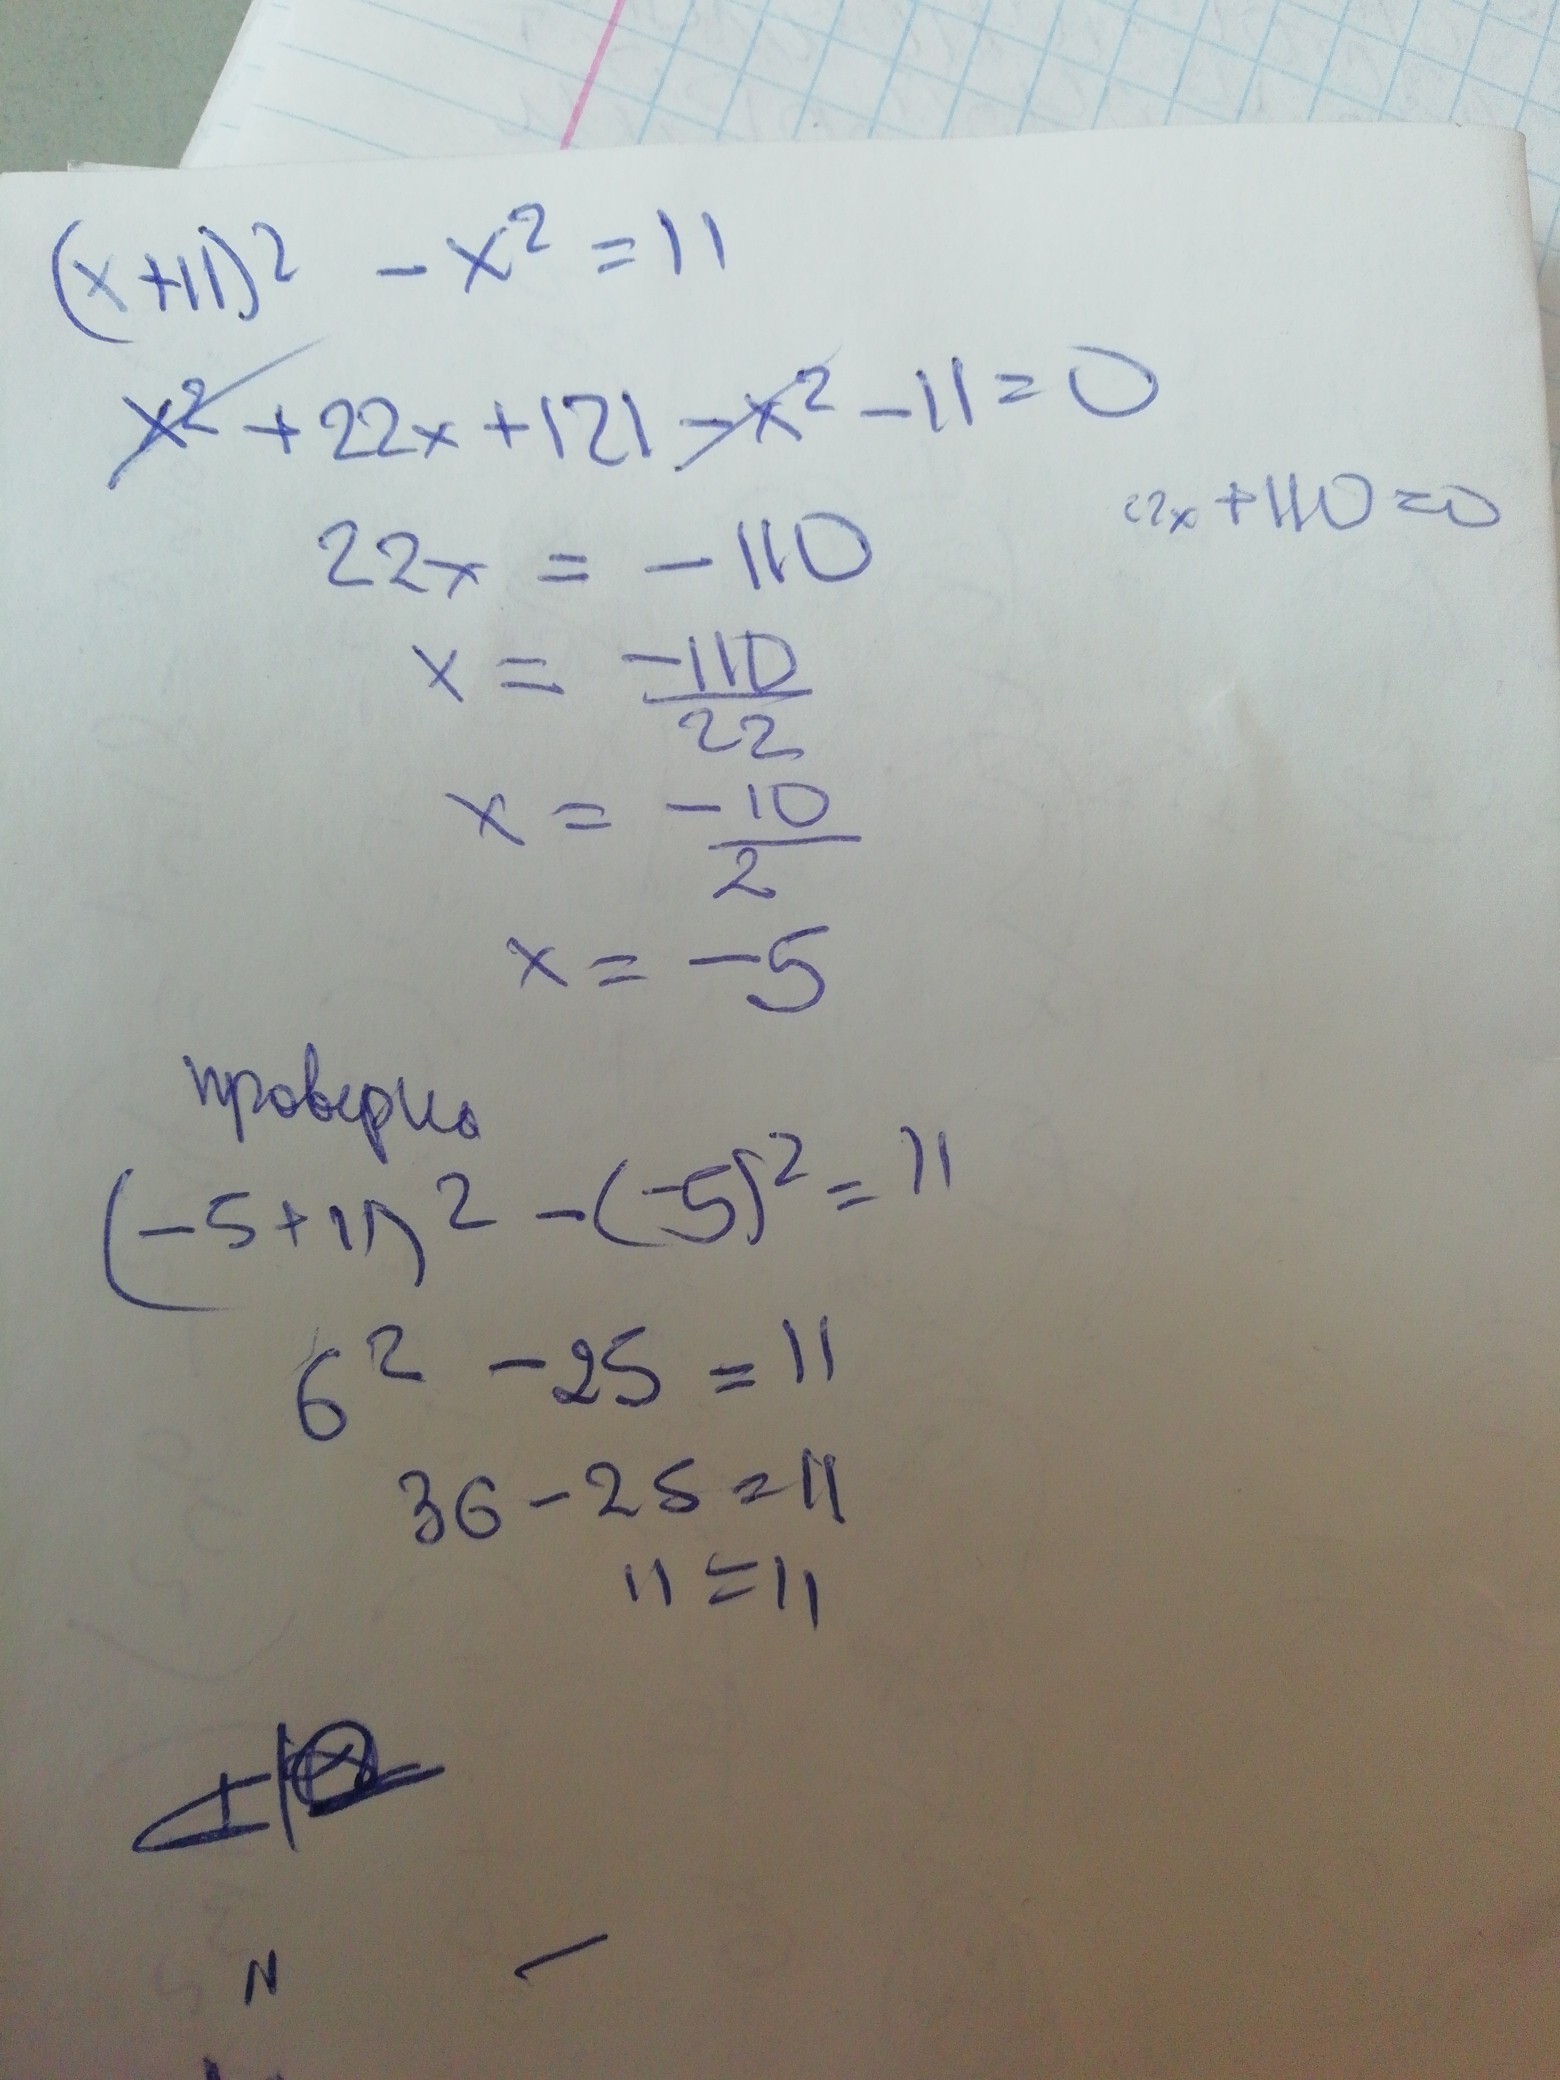 (x+11)² - x² = 11
x² + 22x + 121 - x² - 11 = 0
22x + 110 = 0
22x = -110
x = -110/22
x = -10/2
x = -5
проверка
(-5+11)² - (-5)² = 11
6² - 25 = 11
36 - 25 = 11
11 = 11
N